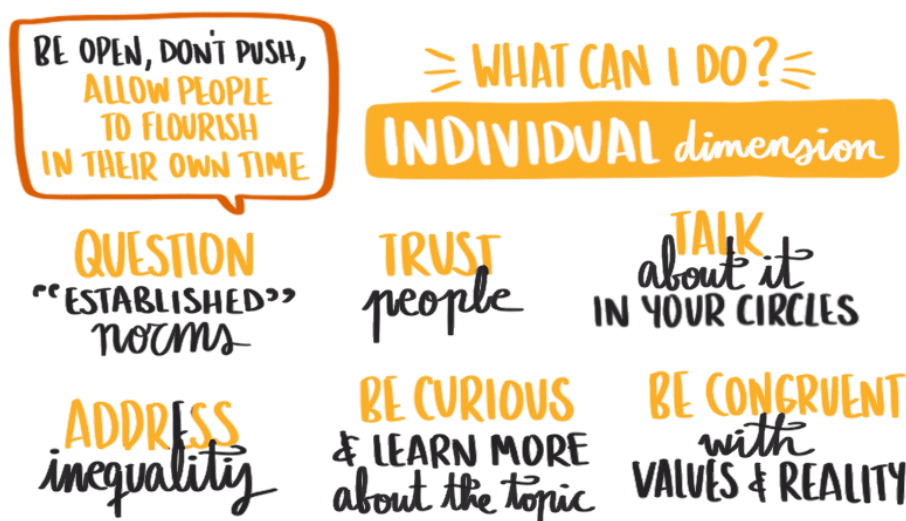 BE OPEN, DON'T PUSH,
ALLOW PEOPLE
TO FLOURISH
IN THEIR OWN TIME
WHAT CAN I DO?
INDIVIDUAL dimension
QUESTION
"ESTABLISHED"
norms
TRUST
people
TALK
about it
IN YOUR CIRCLES
ADDRESS
inequality
BE CURIOUS
& LEARN MORE
about the topic
BE CONGRUENT
with
VALUES & REALITY